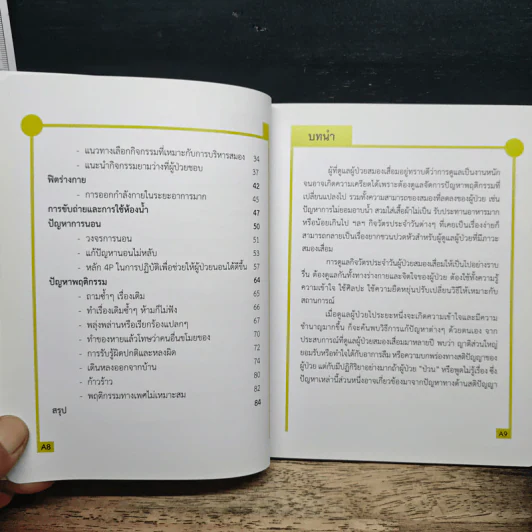 - แนวทางเลือกกิจกรรมที่เหมาะกับการบริหารสมอง 34
- แนะนำกิจกรรมยามว่างที่ผู้ป่วยชอบ 41
ฟิตร่างกาย 42
- การออกกำลังกายในระยะอาการมาก 45
การขับถ่ายและการใช้ห้องน้ำ 47
ปัญหาการนอน 50
- วงจรการนอน 51
- แก้ปัญหานอนไม่หลับ 53
- หลัก 4P ในการปฏิบัติเพื่อช่วยให้ผู้ป่วยนอนได้ดีขึ้น 57
ปัญหาพฤติกรรม 64
- ถามซ้ำๆ เรื่องเดิม 65
- ทำเรื่องเดิมซ้ำๆ ห้ามก็ไม่ฟัง 66
- พลุ่งพล่านหรือเรียกร้องแปลกๆ 68
- ทำของหายแล้วโทษว่าคนอื่นขโมยของ 70
- การรับรู้ผิดปกติและหลงผิด 72
- เดินหลงออกจากบ้าน 74
- ก้าวร้าว 80
- พฤติกรรมทางเพศไม่เหมาะสม 82
สรุป 84
A8
บทนำ
ผู้ที่ดูแลผู้ป่วยสมองเสื่อมอยู่ทราบดีว่าการดูแลเป็นงานหนัก
จนอาจเกิดความเครียดได้เพราะต้องดูแลจัดการปัญหาพฤติกรรมที่
เปลี่ยนแปลงไป รวมทั้งความสามารถของสมองที่ลดลงของผู้ป่วย เช่น
ปัญหาการไม่ยอมอาบน้ำ สวมใส่เสื้อผ้าไม่เป็น รับประทานอาหารมาก
หรือน้อยเกินไป ฯลฯ กิจวัตรประจำวันต่างๆ ที่เคยเป็นเรื่องง่ายก็
สามารถกลายเป็นเรื่องยากชวนปวดหัวสำหรับผู้ดูแลผู้ป่วยที่มีภาวะ
สมองเสื่อม
การดูแลกิจวัตรประจำวันผู้ป่วยสมองเสื่อมให้เป็นไปอย่างราบ
รื่น ต้องดูแลกันทั้งทางร่างกายและจิตใจของผู้ป่วย ต้องใช้ทั้งความรู้
ความเข้าใจ ใช้ศิลปะ ใช้ความยืดหยุ่นปรับเปลี่ยนวิธีให้เหมาะกับ
สถานการณ์
เมื่อดูแลผู้ป่วยไประยะหนึ่งจะเกิดความเข้าใจและมีความ
ชำนาญมากขึ้น ก็จะค้นพบวิธีการแก้ปัญหาต่างๆ ด้วยตนเอง จาก
ประสบการณ์ที่ดูแลผู้ป่วยสมองเสื่อมมาหลายปี พบว่า ญาติส่วนใหญ่
ยอมรับหรือทำใจได้กับอาการลืม หรือความบกพร่องทางสติปัญญาของ
ผู้ป่วย แต่กับมีปฏิกิริยาอย่างมากถ้าผู้ป่วย "ป่วน" หรือพูดไม่รู้เรื่อง ซึ่ง
ปัญหาเหล่านี้ส่วนหนึ่งอาจเกี่ยวข้องมาจากปัญหาทางด้านสติปัญญา
A9